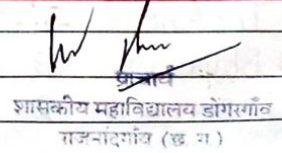 प्राचार्य
शासकीय महाविद्यालय डोंगरगाँव
राजनांदगाँव (छ. ग.)